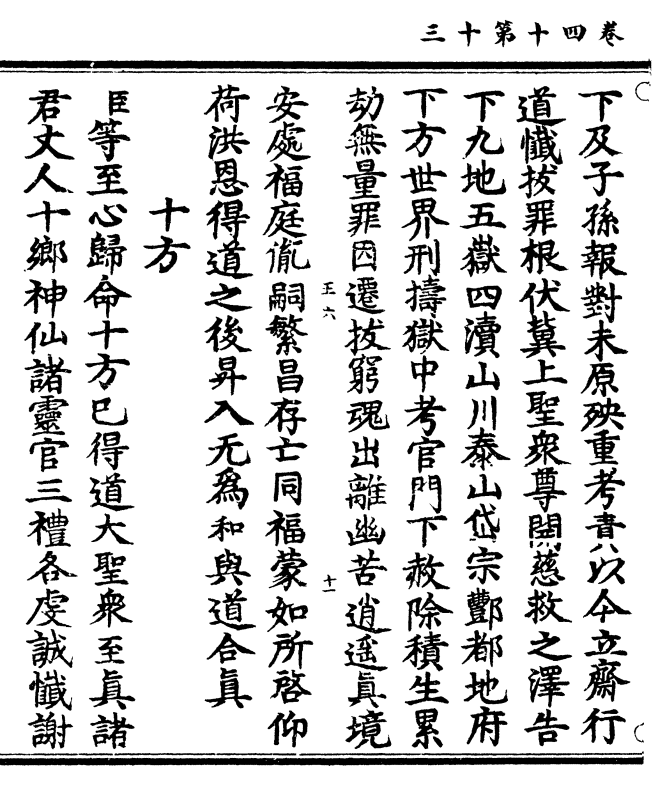 卷四十第十三
下及子孫報對未原殃重考責以今立齋行
道懺拔罪根伏冀上聖衆尊開慈救之澤告
下九地五嶽四瀆山川泰山岱宗酆都地府
下方世界刑擣獄中考官門下赦除積生累
劫無量罪因遷拔窮魂出離幽苦逍遥眞境
王六
十一
安處福庭胤嗣繁昌存亡同福蒙如所啓仰
荷洪恩得道之後昇入无爲和與道合眞
十方
臣等至心歸命十方已得道大聖衆至眞諸
君丈人十鄉神仙諸靈官三禮各虔誠懺謝